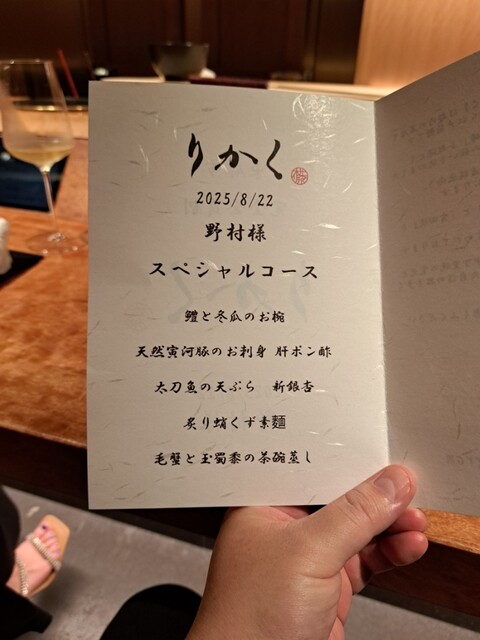 りかく
2025/8/22
野村様
スペシャルコース
鱧と冬瓜のお椀
天然寅河豚のお刺身 肝ポン酢
太刀魚の天ぷら 新銀杏
炙り蛸くず素麺
毛蟹と玉蜀黍の茶碗蒸し